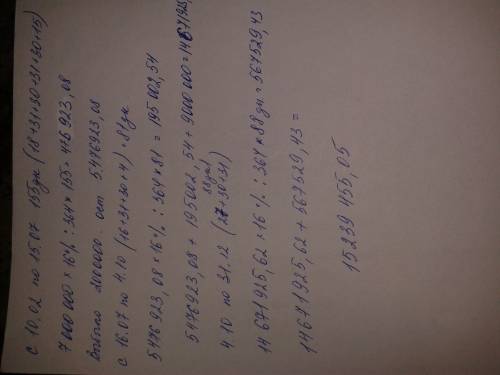 с 10.02 по 15.07 155дн (18+31+30+31+30+15)
7 000 000 × 16% : 364 × 155 = 476 923,08
2000000. ост 5.476923,08
с 16.07 по 4.10 (16+31+30+4) = 81дн
5 476 923,08 × 16% : 364 × 81 = 195 002,54
5476923,08 + 195002,54 + 9000 000 = 14671925,
88дн
4.10 по 31.12 (27+30+31)
14 671 925,62 × 16% : 364 × 88дн = 567529,43
14671925,62 + 567529,43 =
15239 455,05